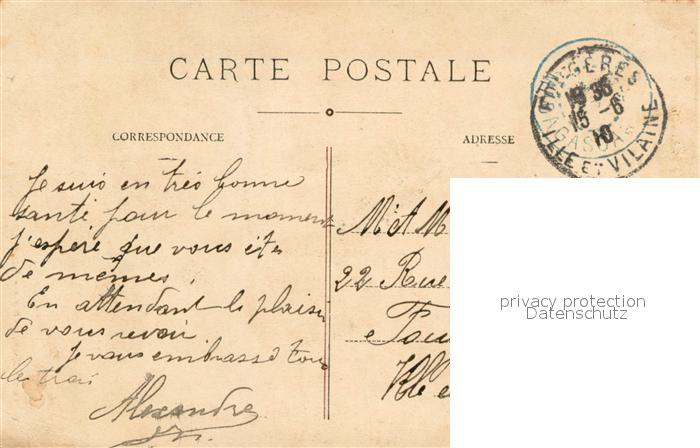 CARTE POSTALE
CORRESPONDANCE
ADRESSE
FOUGÈRES
15 - 6
10
ILLE ET VILAINE
Je suis en très bonne
santé pour le moment
j'espère que vous êtes
de mêmes.
En attendant le plaisir
de vous revoir
Je vous embrasse tous
le trai
Alexandre
22 Rue
Fou
Ille e
privacy protection
Datenschutz